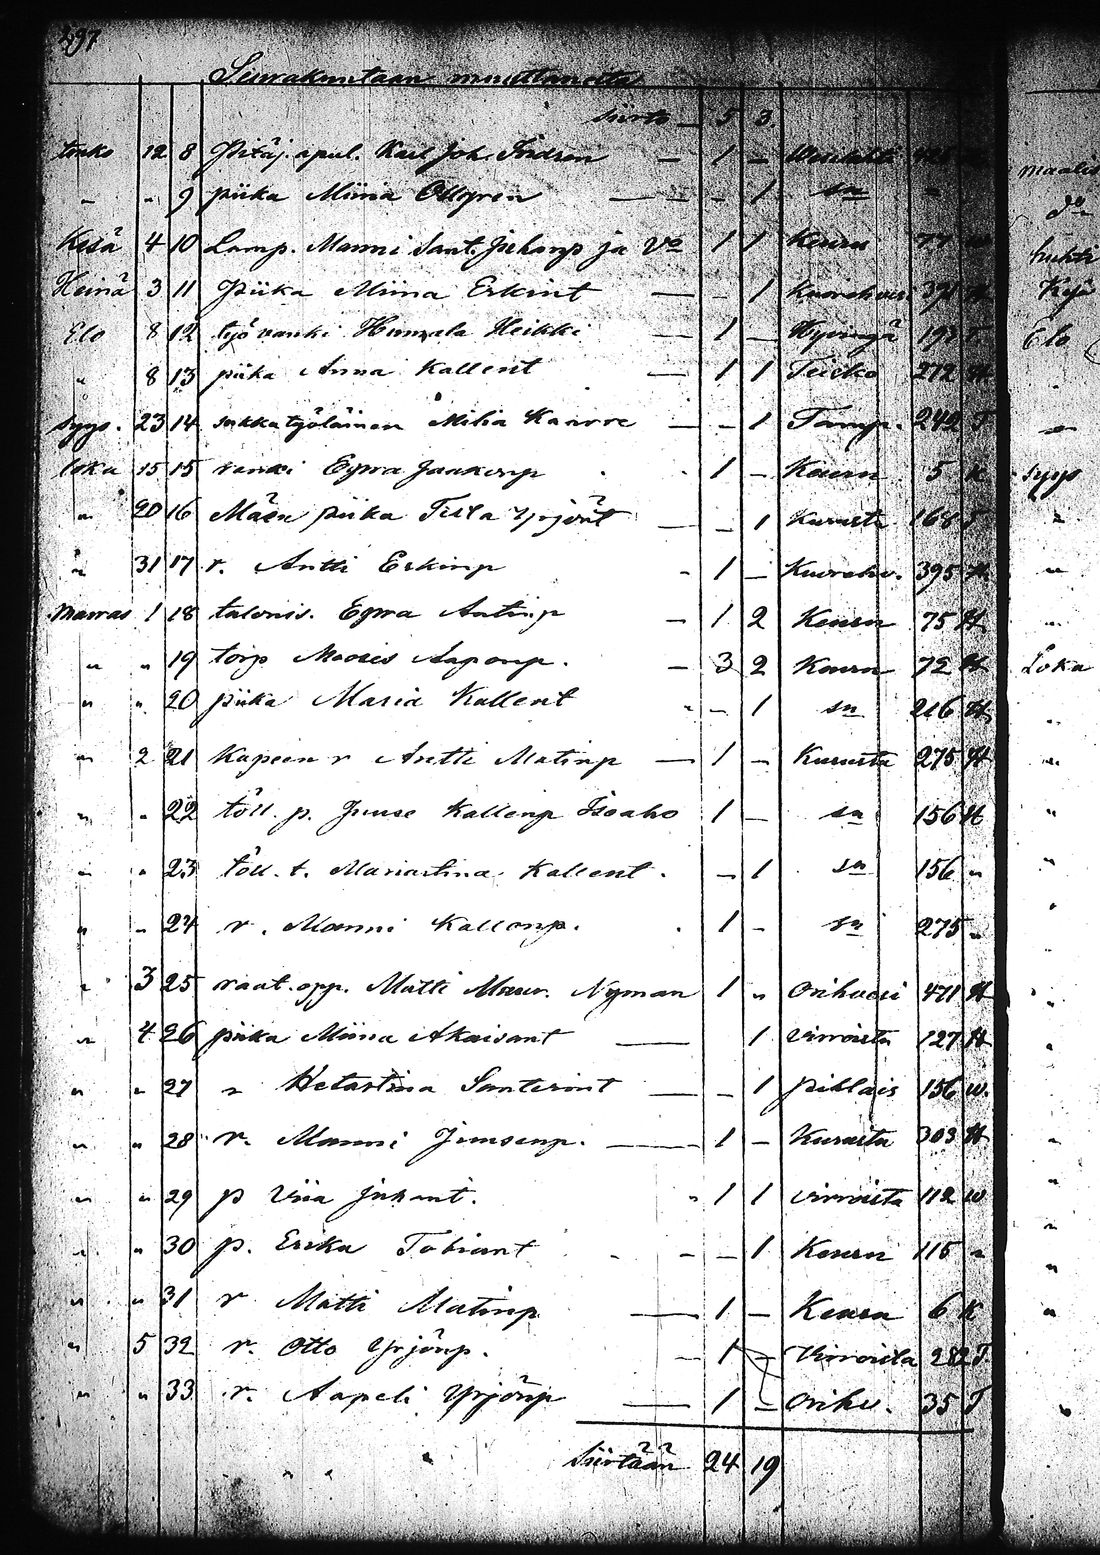 297
Seurakuntaan muuttaneita
siirto — 5 3
touko 12 8 Pitäj. apul. Karl Joh. — 1 —
„ „ 9 piika Miina — — 1 sn „
Kesä 4 10 Lamp. Manni Sant. Juhanp ja Vo 1 1 Keuru 77
Heinä 3 11 Piika Miina Erkint — — 1 Kuorehvesi 371 H
Elo 8 12 työ renki Humala Heikki — 1 — Hyvingä 193 T
„ 8 13 piika Anna Kallent — 1 1 Teisko 272 H
syys. 23 14 sukkatyöläinen Milia Kaarre — — 1 Tamp. 242 T
loka 15 15 renki Eqwa Jaakonp 1 — Keuru 5 K
„ 20 16 Mäen piika Tilta Yrjönt — — 1 Kuruste 168 T
„ 31 17 r. Antti Erkinp - 1 — Kuorehv. 395 H
marras 1 18 talonis. Eqwa Antinp - 1 2 Keuru 75 H
„ „ 19 torp Mooses Aaponp. — 3 2 Keuru 72 H
„ „ 20 piika Maria Kallent - - 1 sn 216 H
„ 2 21 Kapeen r Antti Matinp — 1 — Kurusta 275 H
„ „ 22 töll. p. Juuse Kallenp Isoaho 1 — sn 156 H
„ „ 23 töll. t. Mariastina Kallent. — 1 sn 156 „
„ „ 24 r. Manni Kallenp. 1 — sn 275 „
„ 3 25 raat. opp. Matti Maur. Nyman 1 „ Orihvesi 471 H
„ 4 26 piika Miina Akaisant — 1 Virroista 127 H
„ „ 27 „ Hetastina Santerint — — 1 pihlais 156 w.
„ „ 28 r. Manni Juusenp. — 1 — Kurusta 303 H
„ „ 29 p Viia Juhant. „ 1 1 Virroista 112 w
„ „ 30 p. Erika Tobiant - — 1 Keuru 115 „
„ „ 31 r Matti Matinp — 1 — Keuru 6 K
„ 5 32 r. Otto Yrjönp. — 1 — Virroista 282 T.
„ „ 33 r. Aapeli Yrjönp — 1 — Orihv. 35 T
Siirtään 24 19
maalis
do
huhti
Kesä
Elo
„
syys
„
„
„
Loka